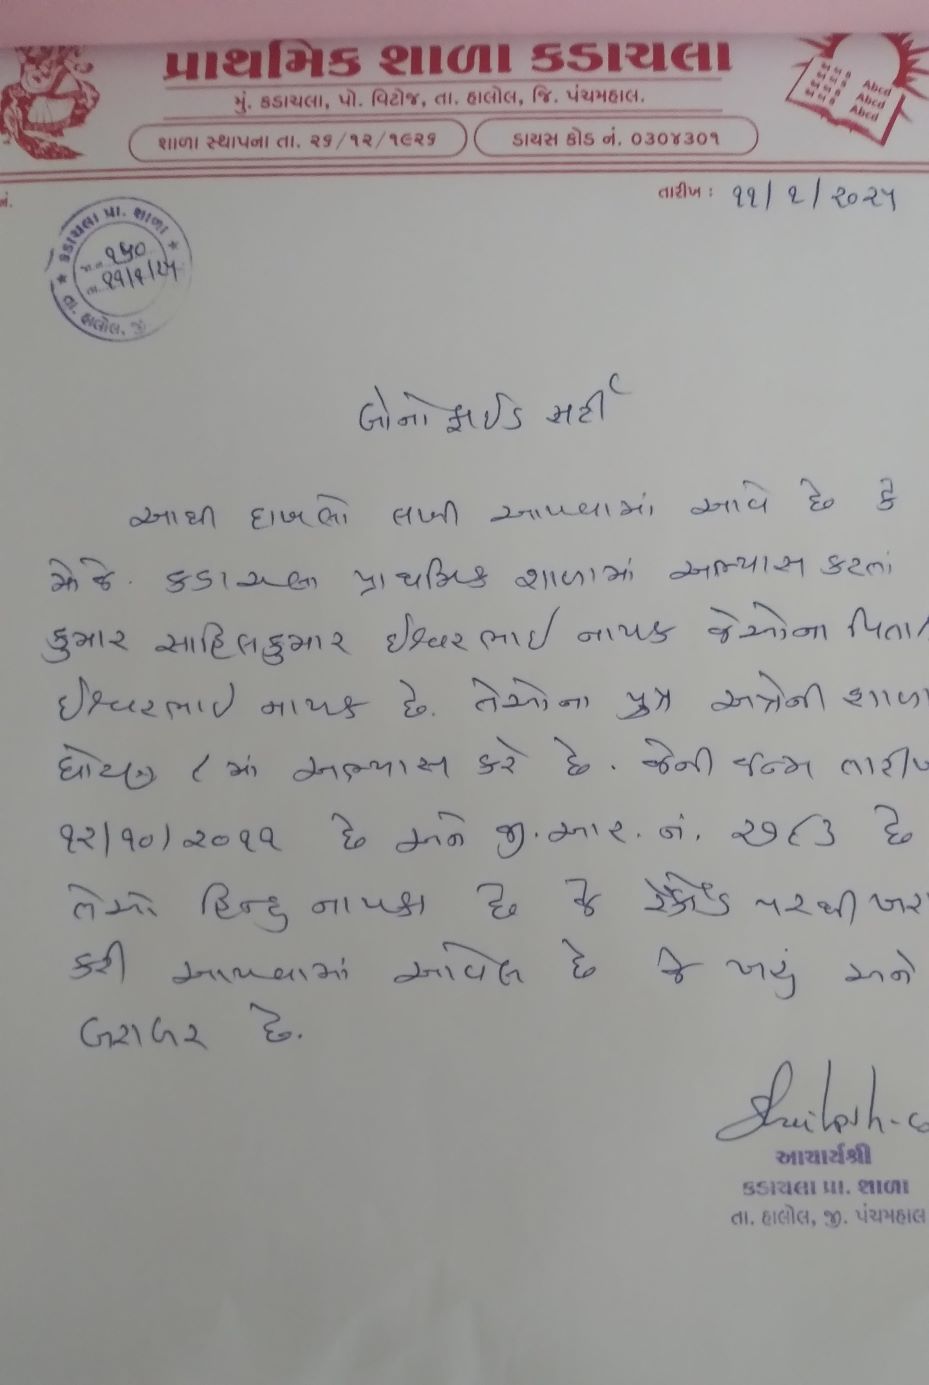 પ્રાથમિક શાળા કડાચલા
મું. કડાચલા, પો. વિટોજ, તા. હાલોલ, જિ. પંચમહાલ.
શાળા સ્થાપના તા. ૨૬/૧૨/૧૯૨૬
ડાયસ કોડ નં. ૦૩૦૪૩૦૧
Abcd
Abcd
Abcd
નં.
તારીખ : ૧૧/૧/૨૦૨૫
કડાચલા પ્રા. શાળા
૧૫૦
તા. ૧૧/૧/૨૫
તા. હાલોલ, જી
બોનોફાઈડ સર્ટી
આથી દાખલો લખી આપવામાં આવે છે કે
મોજે. કડાચલા પ્રાથમિક શાળામાં અભ્યાસ કરતાં
કુમાર સાહિલકુમાર ઈશ્વરભાઈ નાયક જેઓના પિતા
ઈશ્વરભાઈ નાયક છે. તેઓના પુત્ર અત્રેની શાળા
ધોરણ ૮ માં અભ્યાસ કરે છે. જેની જન્મ તારીખ
૧૨/૧૦/૨૦૧૧ છે અને જી.આર.નં. ૨૭૮૩ છે
તેઓ હિન્દુ નાયકા છે જે રેકોર્ડ પરથી ખર
કરી આપવામાં આવેલ છે જે ખરું અને
બરાબર છે.
આચાર્યશ્રી
કડાચલા પ્રા. શાળા
તા. હાલોલ, જી. પંચમહાલ